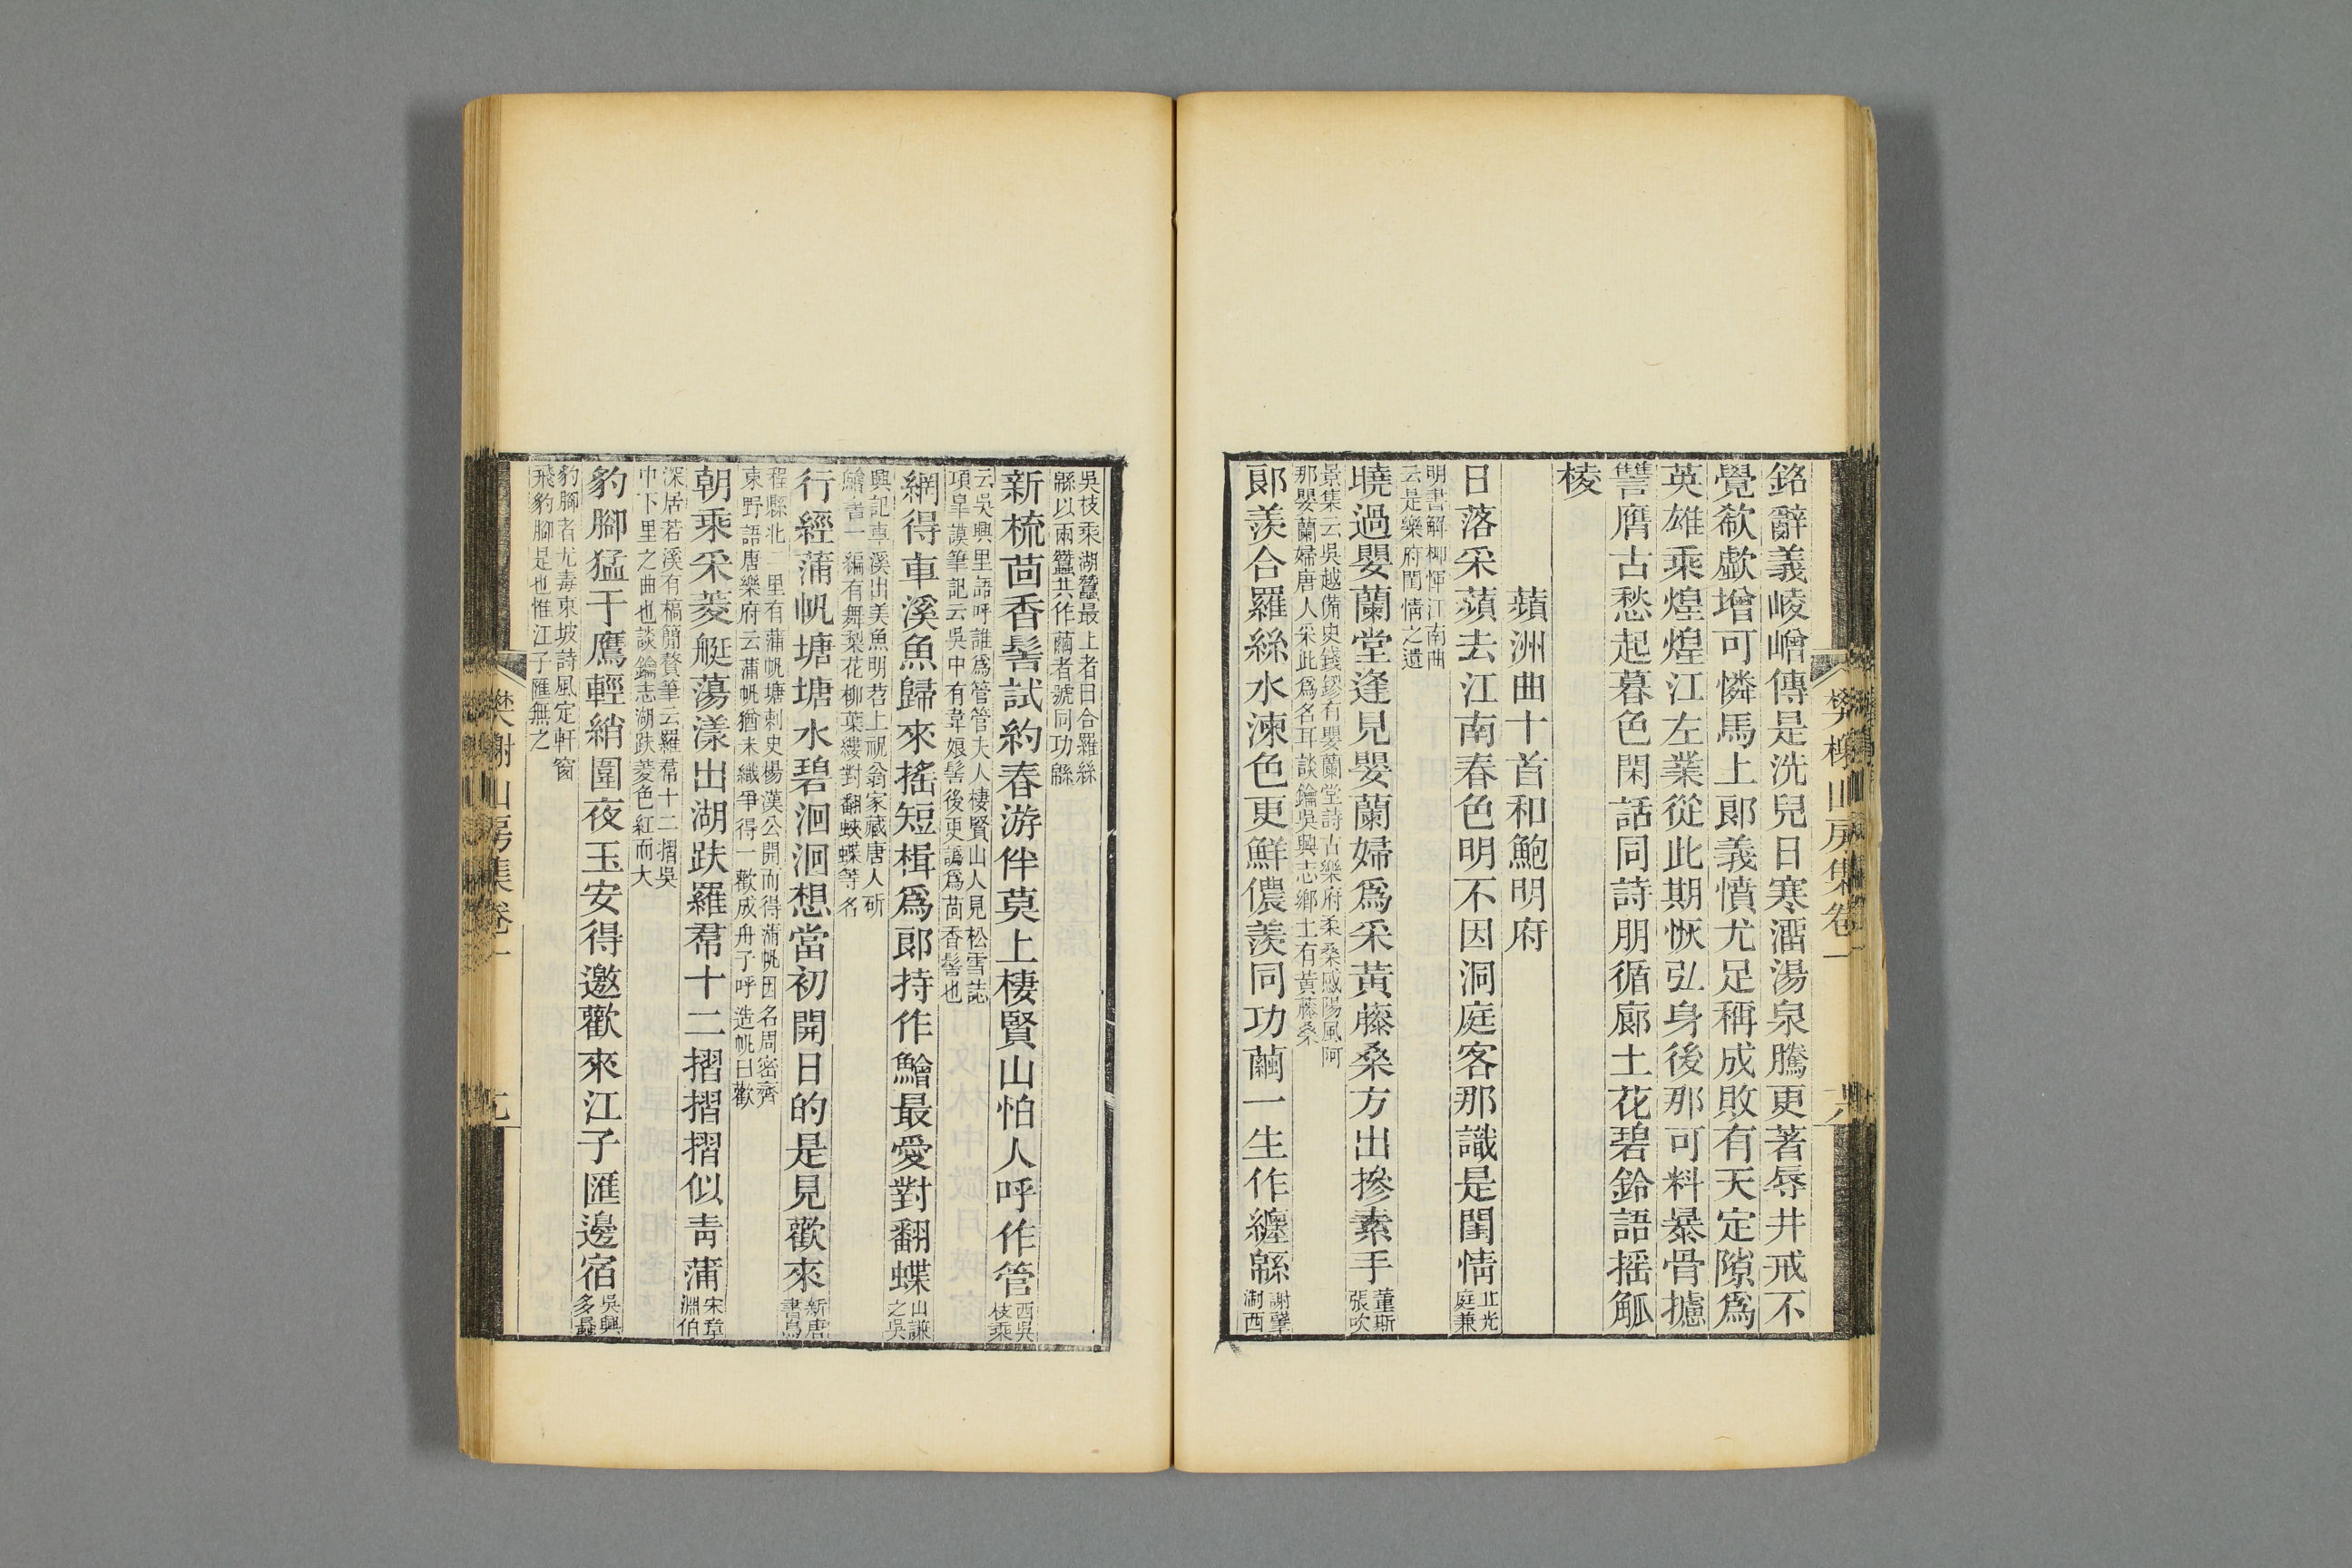 樊榭山房集卷一
銘辭義崚嶒傳是洗兒日寒㵽湯泉騰更著辱井戒不
覺欷歔增可憐馬上郞義憤尤足稱成敗有天定隙爲
英雄乘煌煌江左業從此期恢弘身後那可料暴骨攄
讐膺古愁起暮色閑話同詩朋循廊土花碧鈴語摇觚
棱
蘋洲曲十首和鮑明府
日落采蘋去江南春色明不因洞庭客那識是閨情
北光
庭兼
明書解柳惲江南曲
云是樂府閨情之遺
曉過嬰蘭堂逢見嬰蘭婦爲采黃藤桑方出摻素手
董斯
張吹
景集云吳越備史錢鏐有嬰蘭堂詩古樂府柔桑感陽風阿
那嬰蘭婦唐人采此爲名耳談鑰吳興志鄉土有黃藤桑
郞羨合羅絲水湅色更鮮儂羨同功繭一生作纏緜
謝肇
淛西
吳枝乘湖蠶最上者曰合羅絲
緜以兩蠶共作繭者號同功緜
新梳茴香髻試約春游伴莫上棲賢山怕人呼作管
西吳
枝乘
云吳興里語呼誰爲管管夫人棲賢山人見松雪誌
項皐謨筆記云吳中有韋娘髻後更譌爲茴香髻也
網得車溪魚歸來搖短楫爲郞持作鱠最愛對翻蝶
山謙
之吳
興記專溪出美魚明苕上祝翁家藏唐人斫
鱠書一編有舞梨花柳葉縷對翻蛺蝶等名
行經蒲帆塘塘水碧洄洄想當初開日的是見歡來
新唐
書烏
程縣北二里有蒲帆塘刺史楊漢公開而得蒲帆因名周密齊
東野語唐樂府云蒲帆猶未織爭得一歡成舟子呼造帆曰歡
朝乘采菱艇蕩漾出湖趺羅帬十二摺摺摺似靑蒲
宋章
淵伯
深居若溪有槁簡贅筆云羅帬十二摺吳
中下里之曲也談鑰志湖趺菱色紅而大
豹腳猛于鷹輕綃圍夜玉安得邀歡來江子匯邊宿
吳興
多蟁
豹腳者尤毒東坡詩風定軒窗
飛豹腳是也惟江子匯無之
樊榭山房集卷一